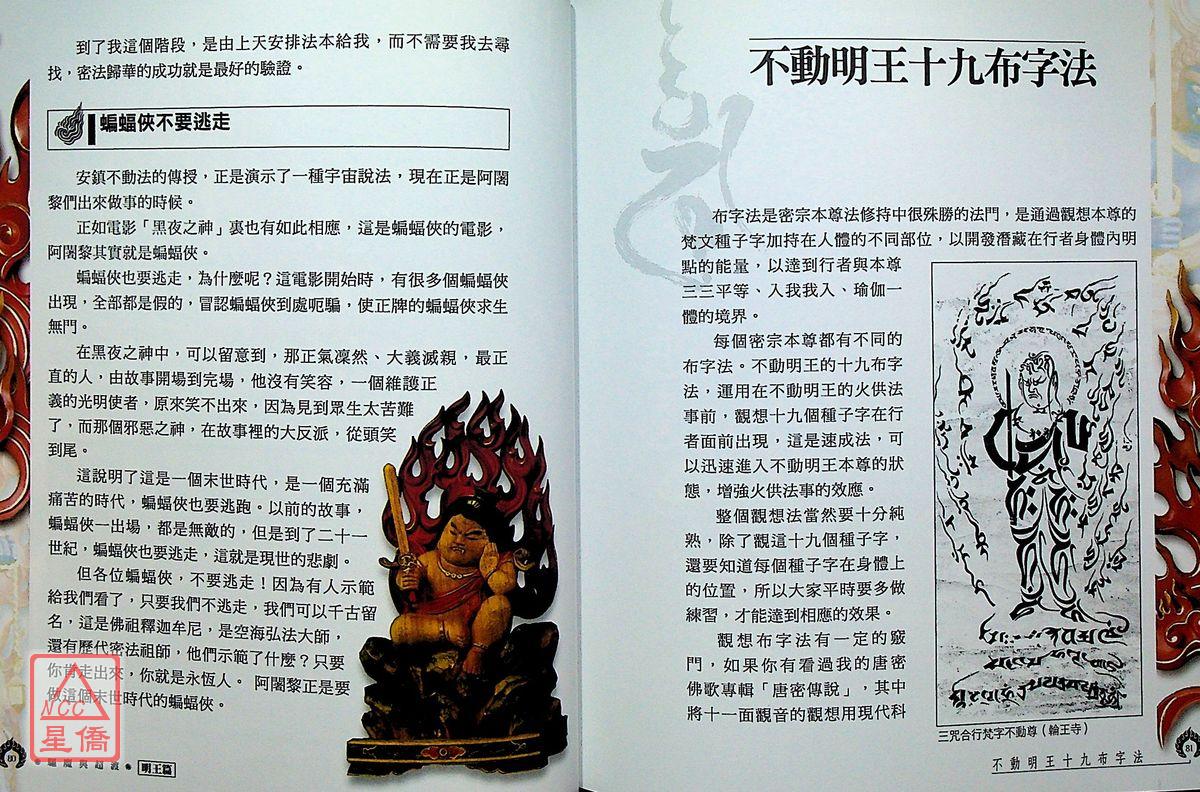 到了我這個階段，是由上天安排法本給我，而不需要我去尋
找，密法歸華的成功就是最好的驗證。
蝙蝠俠不要逃走
安鎮不動法的傳授，正是演示了一種宇宙說法，現在正是阿闍
黎們出來做事的時候。
正如電影「黑夜之神」裏也有如此相應，這是蝙蝠俠的電影，
阿闍黎其實就是蝙蝠俠。
蝙蝠俠也要逃走，為什麼呢？這電影開始時，有很多個蝙蝠俠
出現，全部都是假的，冒認蝙蝠俠到處呃騙，使正牌的蝙蝠俠求生
無門。
在黑夜之神中，可以留意到，那正氣凜然、大義滅親，最正
直的人，由故事開場到完場，他沒有笑容，一個維護正
義的光明使者，原來笑不出來，因為見到眾生太苦難
了，而那個邪惡之神，在故事裡的大反派，從頭笑
到尾。
這說明了這是一個末世時代，是一個充滿
痛苦的時代，蝙蝠俠也要逃跑。以前的故事，
蝙蝠俠一出場，都是無敵的，但是到了二十一
世紀，蝙蝠俠也要逃走，這就是現世的悲劇。
但各位蝙蝠俠，不要逃走！因為有人示範
給我們看了，只要我們不逃走，我們可以千古留
名，這是佛祖釋迦牟尼，是空海弘法大師，
還有歷代密法祖師，他們示範了什麼？只要
你肯走出來，你就是永恆人。 阿闍黎正是要
做這個末世時代的蝙蝠俠。
NCC
星僑
80
驅魔與超渡
明王篇
不動明王十九布字法
布字法是密宗本尊法修持中很殊勝的法門，是通過觀想本尊的
梵文種子字加持在人體的不同部位，以開發潛藏在行者身體內明
點的能量，以達到行者與本尊
三三平等、入我我入、瑜伽一
體的境界。
每個密宗本尊都有不同的
布字法。不動明王的十九布字
法，運用在不動明王的火供法
事前，觀想十九個種子字在行
者面前出現，這是速成法，可
以迅速進入不動明王本尊的狀
態，增強火供法事的效應。
整個觀想法當然要十分純
熟，除了觀這十九個種子字，
還要知道每個種子字在身體上
的位置，所以大家平時要多做
練習，才能達到相應的效果。
觀想布字法有一定的竅
門，如果你有看過我的唐密
佛歌專輯「唐密傳說」，其中
將十一面觀音的觀想用現代科
三咒合行梵字不動尊（輪王寺）
不動明王十九布字法
81